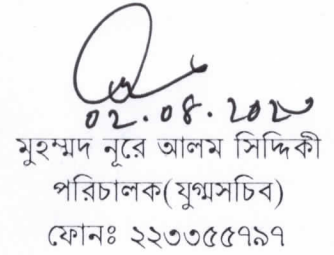 02.08.202
মুহম্মদ নূরে আলম সিদ্দিকী
পরিচালক(যুগ্মসচিব)
ফোনঃ ২২৩৩৫৫৭৯৭